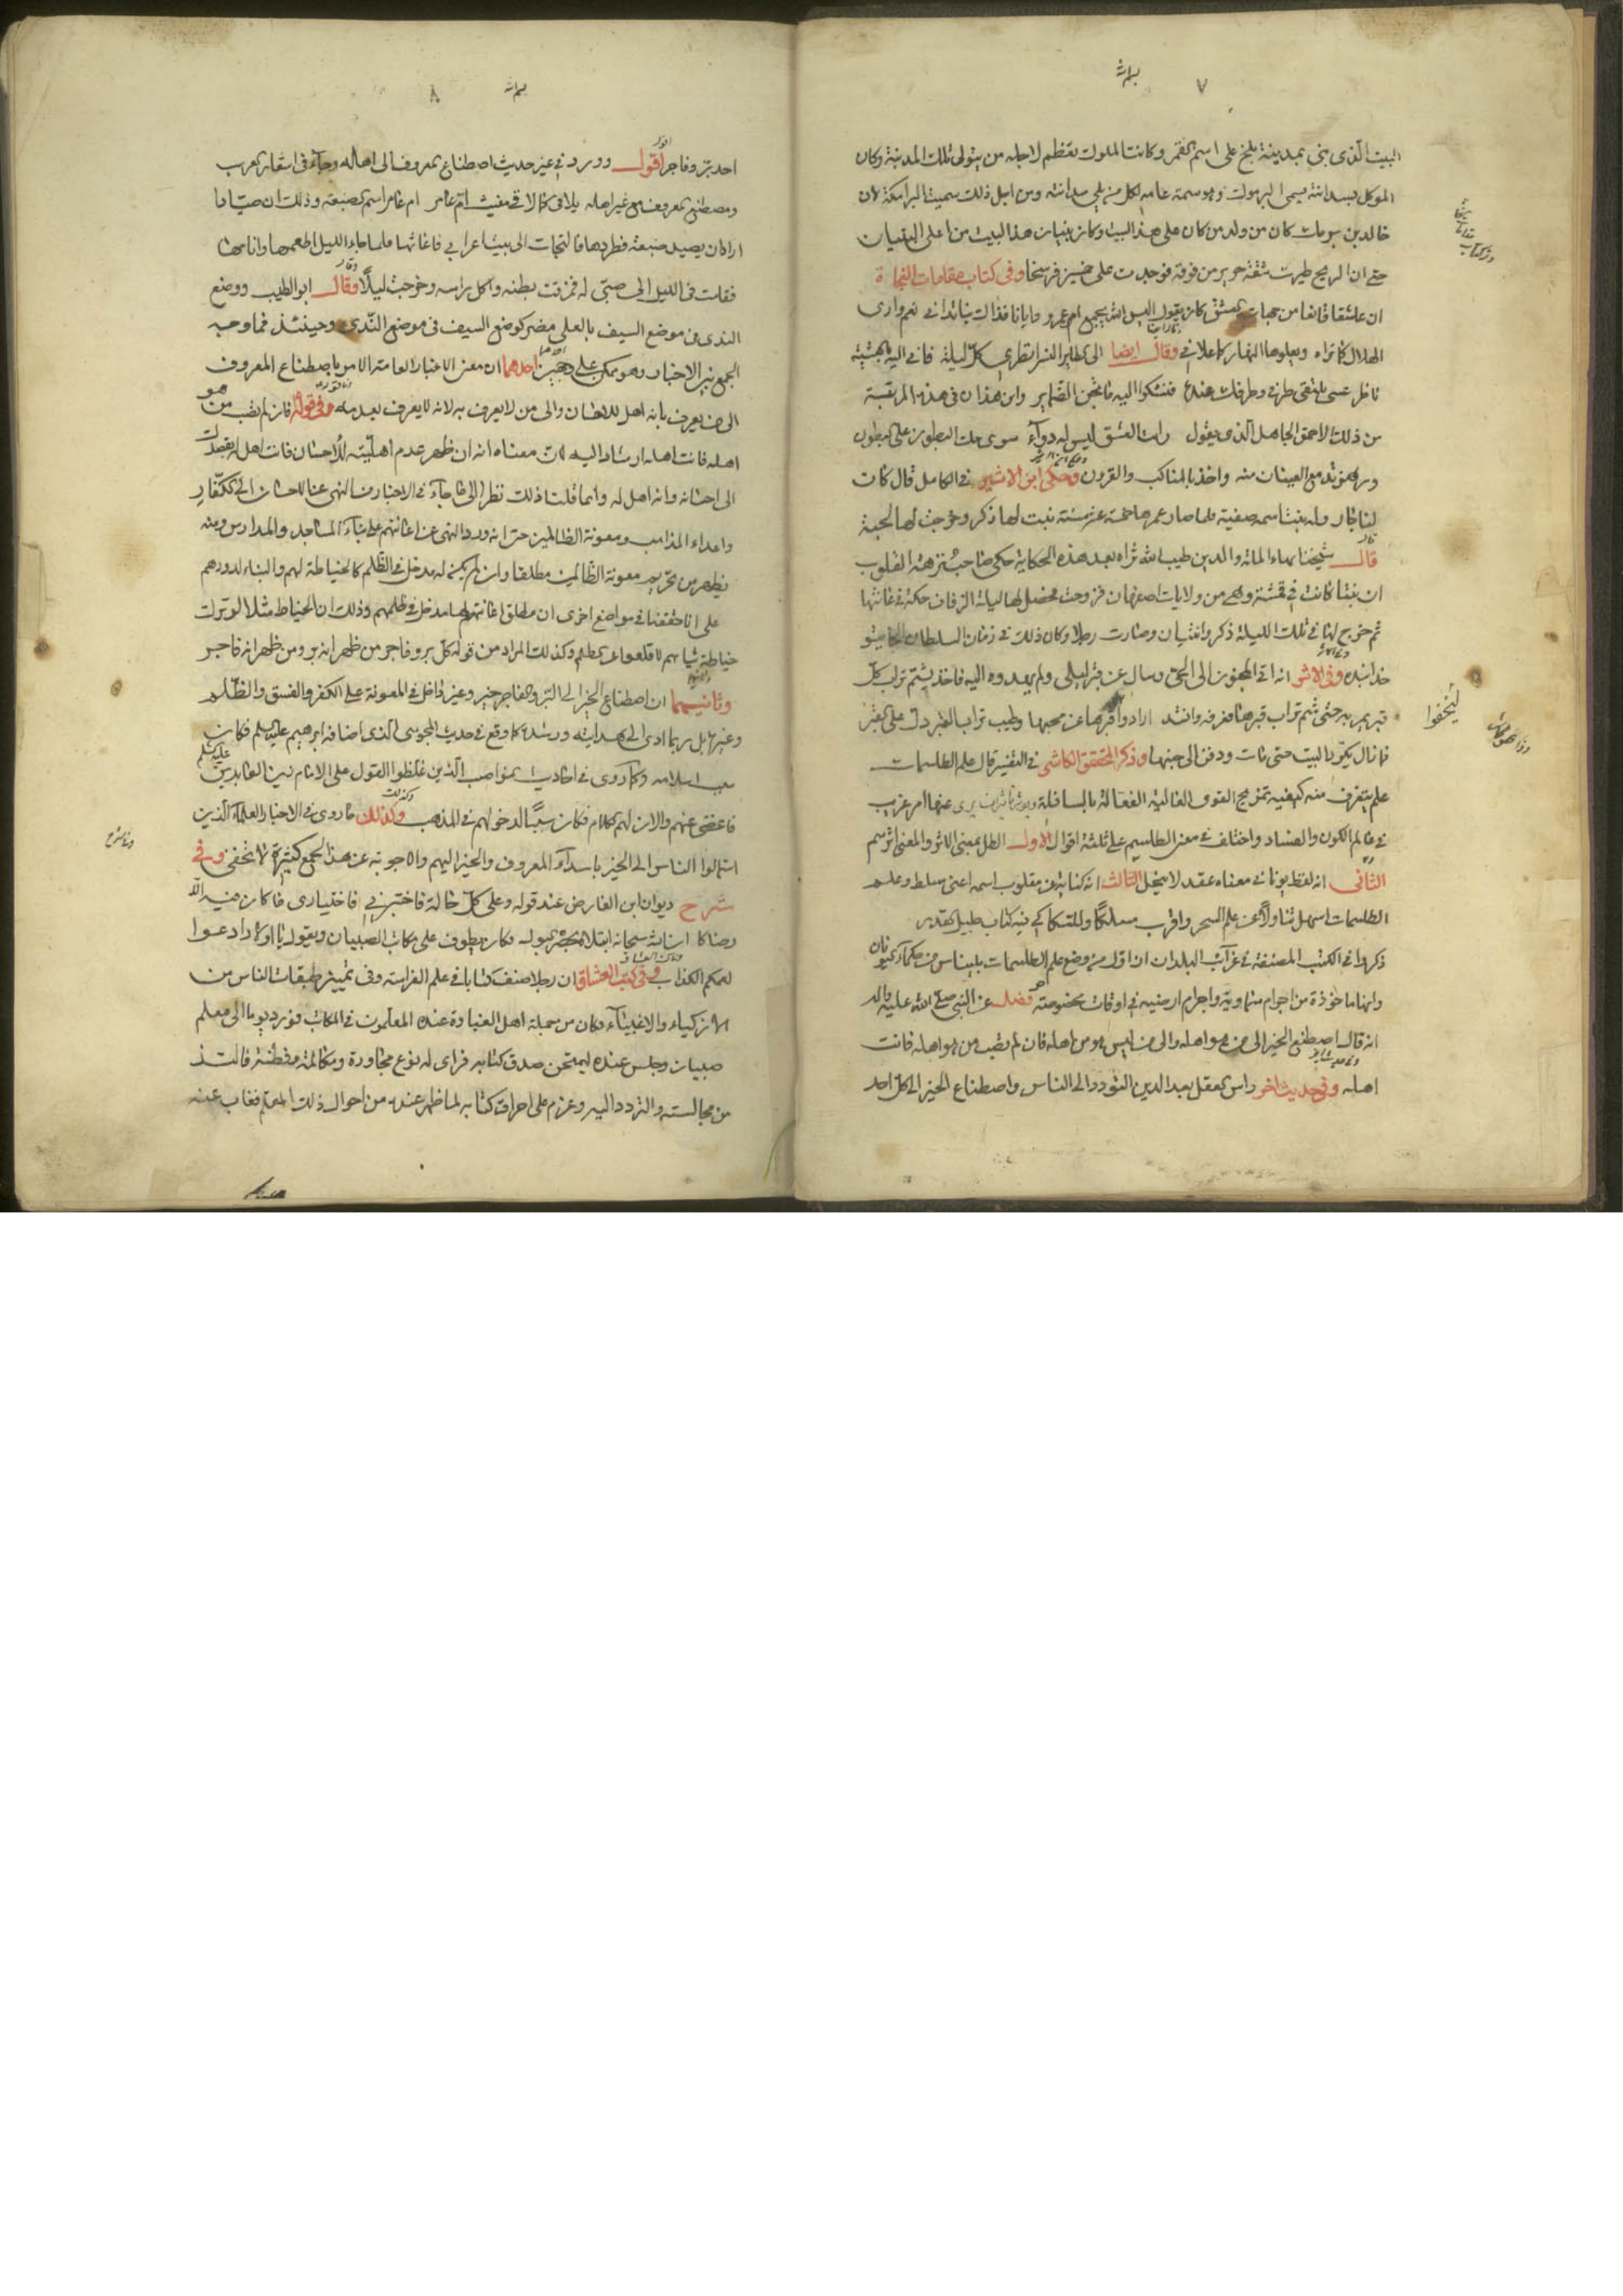 ٧
البيت الذى بنى بمدينة بلخ على اسم القمر وكانت الملوك تعظم لاجله من يتولى تلك المدينة وكان
الموكل بسدانته يسمى البرموك وهو سمة عامه لكل من يلى سدانته ومن اجل ذلك سميت البرامكة لان
خالد بن برمك كان من ولد من كان على هذا البيت وكان بنيان هذا البيت من اعلى البنيان
حتى ان الريح طيرت شقة حرير من فوقه فوجدت على خمسين فرسخا وفى كتاب مقامات النجاة
ان عاشقا قانعا من جهات المعشق كان يقول اليس الله يجمع ام عمرو وايانا فذاك بنا تدانى نعم وارى
الهلال كما تراه ويعلوها النهار كما علانى وقال ايضا الى الطاير النسر انظرى كل ليلة فانى اليه بالعشية
ناظر عسى يلتقى طرفى وطرفك عنده فنشكوا اليه ما تجن الضماير واين هذا فى هذه المرتبة
من ذلك الاحمق الجاهل الذى يقول رايت العشق ليس له دوآء سوى حك البطون على البطون
ورهز تدمع العينان منه واخذ بالمناكب والقرون وحكى ابن الاثير فى الكامل قال كان
لنا جار وله بنت اسمه صفية فلما صار عمرها خمسة عشر سنة نبت لها ذكر وخرجت لها لحية
قال شيخنا بهاء الملة والدين طيب الله ثراه بعد هذه الحكاية حكى صاحب نزهة القلوب
ان بنتا كانت فى قمشة وهى من ولايات اصفهان فزوجت فحصل لها ليلة الزفاف حكة فى عانتها
ثم خرج لها فى تلك الليلة ذكر وانثيان وصارت رجلا وكان ذلك فى زمان السلطان الجايتو
خدابنده وفى الاثر انه اتى المجنون الى الحى وسال عن قبر ليلى ولم يهدوه اليه فاخذ يشم تراب كل
قبر يمر به حتى شم تراب قبرها فعرفه وانشد ارادوا قبرها عن محبها وطيب تراب القبر دل على القبر
ليخفوا
فما زال يكرر البيت حتى مات ودفن الى جنبها وذكر المحقق الكاشى فى التفسير قال علم الطلسمات
علم يتعرف منه كيفية تمزيج القوى العالية الفعالة بالسافلة
فى عالم الكون والفساد واختلف فى معنى الطلسم على ثلثة اقوال الاول الطل بمعنى الاثر والمعنى اثر سم
الثانى انه لفظ يونانى معناه عقد لا ينحل الثالث انه كناية عن مقلوب اسمه اعنى مسلط وعلم
الطلسمات اسهل تناولا عن علم السحر واقرب مسلكا وللسكاكى فيه كتاب جليل القدر
ذكروا فى الكتب المصنفة فى غرآئب البلدان ان اول من وضع علم الطلسمات بليناس من حكمآء اليونان
وانها ماخوذة من اجرام سماوية واجرام ارضيه فى اوقات مخصوصة فصل عن النبى صلى الله عليه واله
انه قال اصطنع الخير الى من هو اهله والى من ليس هو من اهله فان لم تصب من هو اهله فانت
اهله وفى حديث اخر راس العقل بعد الدين التودد الى الناس واصطناع الخير الى كل احد
٨
احد بر وفاجر اقول وورد فى غير حديث اصطناع المعروف الى اهله وجآء فى اشعار العرب
ومصطنع المعروف مع غير اهله يلاقى كما لاقى مغيث ام عامر ام عامر اسم الضبعة وذلك ان صيادا
اراد ان يصيد ضبعة فطردها فالتجات الى بيت اعرابى فاغاثها فلما جاء الليل اطعمها وانامها
فقامت فى الليل الى صبى له فمزقت بطنه واكل راسه وخرجت ليلا وقال ابو الطيب ووضع
الندى فى موضع السيف بالعلى مضر كوضع السيف فى موضع الندى وحينئذ فما وجه
الجمع بين الاخبار وهو ممكن على وجهين احدهما ان معنى الاخبار العامة الامر باصطناع المعروف
الى من يعرف بانه اهل للاحسان والى من لا يعرف به لانه لا يعرف بعد منه وفى قوله فان لم تصب من هو
اهله فانت اهله ارشاد اليه لان معناه انه ان ظهر عدم اهليته للاحسان فانت اهل لقصدك
الى احسانه وانه اهل له وانما قلت ذلك نظرا الى ما جآء فى الاخبار من النهى عن الاحسان الى الكفار
واعداء المذاهب ومعونة الظالمين حتى انه ورد النهى عن اعانتهم على بنآء المساجد والمدارس ومنه
يظهر من تحريم معونة الظالمين مطلقا وان لم يكن له مدخل فى الظلم كالخياطة لهم والبناء لدورهم
على انا حققنا فى مواضع اخرى ان مطلق اعانتهم لها مدخل فى ظلمهم وذلك ان الخياط مثلا لو ترك
خياطة ثيابهم لاقلعوا عن الظلم وكذلك المراد من قوله كل بر وفاجر من ظهر انه بر ومن ظهر انه فاجر
وثانيهما ان اصطناع الخير الى البر والفاجر خير وغير داخل فى المعونة على الكفر والفسق والظلم
وغيرها بل ربما ادى الى هدايته ورشده كما وقع فى حديث المجوسى الذى اضافه ابرهيم عليه السلم فكان
سبب اسلامه وكما روى فى احاديث النواصب الذين غلظوا القول على الامام زين العابدين عليه السلم
فاغضى عنهم والان لهم الكلام فكان سببا لدخولهم فى المذهب وكذلك ما روى فى الاخبار العلمآء الذين
استمالوا الناس الى الخير باسدآء المعروف والخير اليهم والاجوبة عن هذا الجمع كثيرة لا تخفى وفى
شرح ديوان ابن الفارض عند قوله وعلى كل حالة فاختبرنى فاختيارى ما كان فيه
رضاكا ان الله سبحانه ابتلاه بحصر البول فكان يطوف على مكاتب الصبيان ويقول يا اولاد ادعوا
لعمكم الكذاب وفى كتب العشاق ان رجلا صنف كتابا فى علم الفراسة وفى تمييز طبقات الناس من
الازكياء والاغبيآء وكان من جملة اهل الغباوة عنده المعلمون فى المكاتب فورد يوما الى معلم
صبيان وجلس عنده ليمتحن صدق كتابه فراى له نوع محاورة ومكالمة وفطنة فالتذ
من مجالسته والتردد اليه وعزم على احراق كتابه لما ظهر عنده من احوال ذلك المعلم فغاب عنه